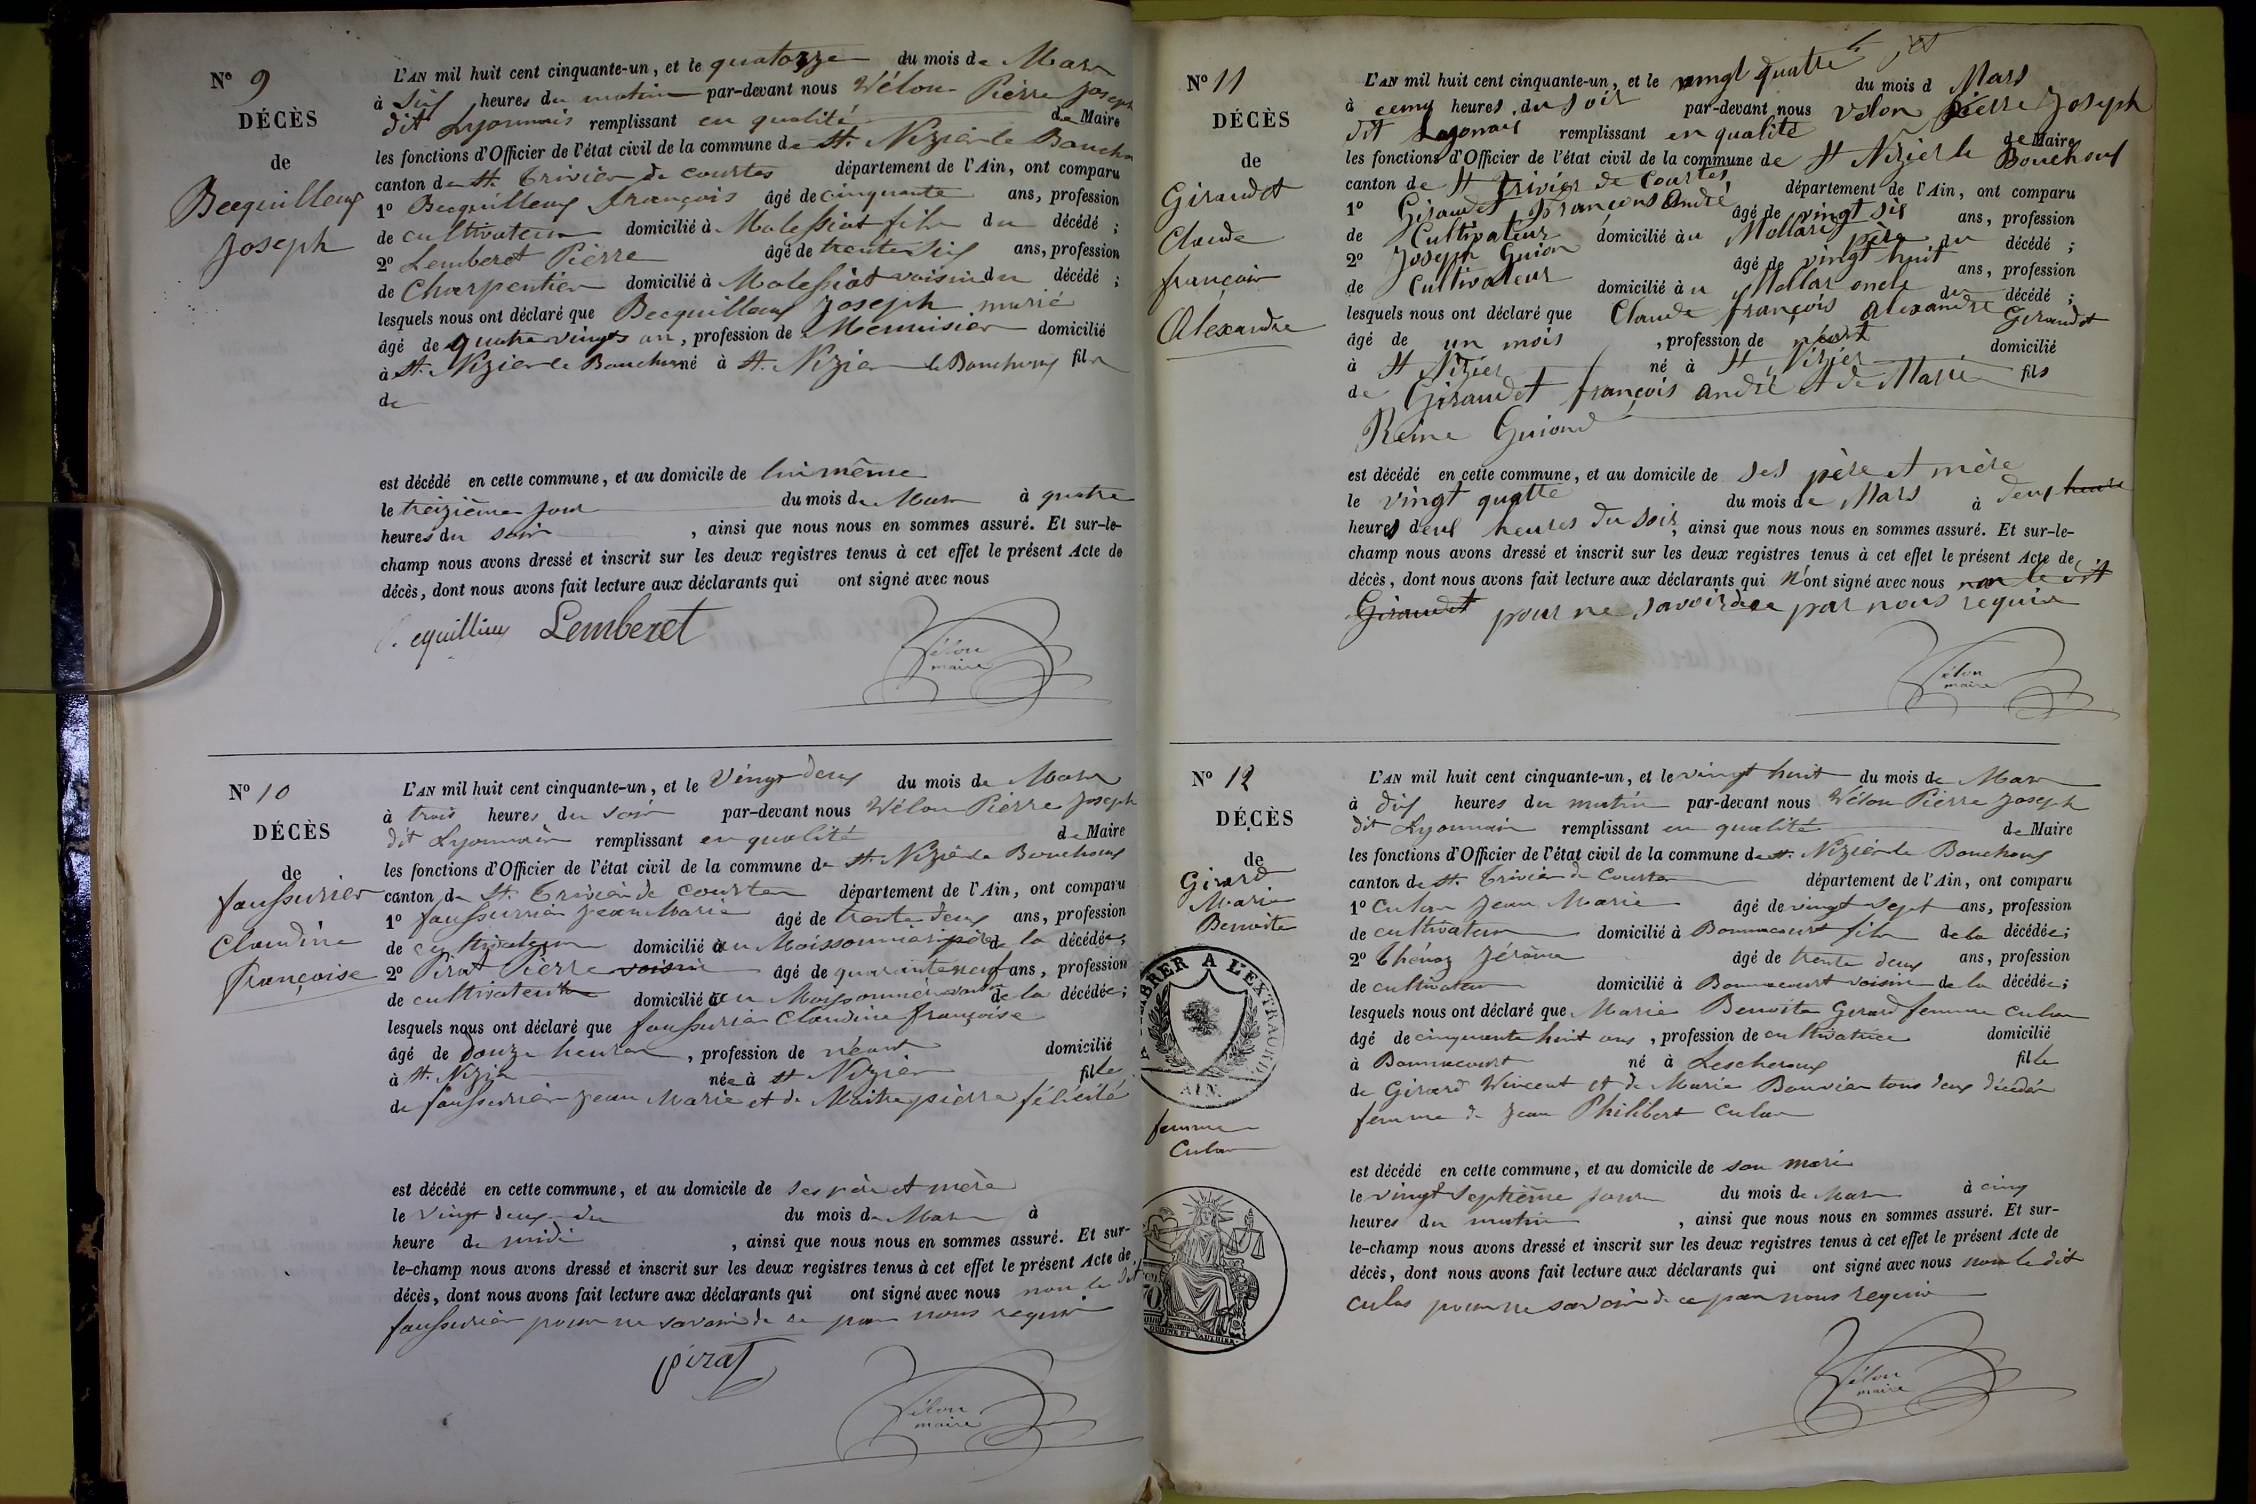 N° 9
DÉCÈS
de
Becquilleux
Joseph
L'AN mil huit cent cinquante-un, et le quatorze du mois de Mars
à six heures du matin par-devant nous Vélon Pierre Joseph
dit Lyonnais remplissant en qualité de Maire
les fonctions d'Officier de l'état civil de la commune de St. Nizier le Bouchoux
canton de St. Trivier de Courtes département de l'Ain, ont comparu
1° Becquilleux François âgé de cinquante ans, profession
de cultivateur domicilié à Malessiat fils du décédé ;
2° Lemberet Pierre âgé de trente six ans, profession
de Charpentier domicilié à Malessiat voisin du décédé ;
lesquels nous ont déclaré que Becquilleux Joseph marié
âgé de quatre vingts ans, profession de Menuisier domicilié
à St. Nizier le Bouchoux né à St. Nizier le Bouchoux fils
de
est décédé en cette commune, et au domicile de lui même
le treizième jour du mois de Mars à quatre
heures du soir, ainsi que nous nous en sommes assuré. Et sur-le-
champ nous avons dressé et inscrit sur les deux registres tenus à cet effet le présent Acte de
décès, dont nous avons fait lecture aux déclarants qui ont signé avec nous
Lemberet
Vélon
maire
N° 10
DÉCÈS
de
faussurier
Claudine
Françoise
L'AN mil huit cent cinquante-un, et le Vingt deux du mois de Mars
à trois heures du soir par-devant nous Vélon Pierre Joseph
dit Lyonnais remplissant en qualité de Maire
les fonctions d'Officier de l'état civil de la commune de St. Nizier le Bouchoux
canton de St. Trivier de Courtes département de l'Ain, ont comparu
1° faussurier Jean Marie âgé de trente deux ans, profession
de cultivateur domicilié au Moissonnier père de la décédée;
2° Pirat Pierre voisin âgé de quarante neuf ans, profession
de cultivateur domicilié au Moissonnier voisin de la décédée;
lesquels nous ont déclaré que faussurier Claudine françoise
âgé de douze heures, profession de néant domicilié
à St. Nizier née à St Nizier fille
de faussurier Jean Marie et de Maitrepierre félicité
est décédé en cette commune, et au domicile de ses père et mère
le vingt deux du du mois de Mars à
heure de midi, ainsi que nous nous en sommes assuré. Et sur-
le-champ nous avons dressé et inscrit sur les deux registres tenus à cet effet le présent Acte de
décès, dont nous avons fait lecture aux déclarants qui ont signé avec nous non le dit
faussurier pour ne savoir de ce par nous requis
pirat
Vélon
maire
N° 11
DÉCÈS
de
Giraudet
Claude
françois
Alexandre
L'AN mil huit cent cinquante-un, et le vingt quatre du mois d Mars
à cinq heures du soir par-devant nous Vélon Pierre Joseph
dit Lagonnais remplissant en qualité de Maire
les fonctions d'Officier de l'état civil de la commune de St Nizier le Bouchoux
canton de St Trivier de Courtes département de l'Ain, ont comparu
1° Giraudet françois André âgé de vingt six ans, profession
de Cultivateur domicilié au Mollard père du décédé ;
2° Joseph Guion âgé de vingt huit ans, profession
de Cultivateur domicilié au Mollar oncle du décédé ;
lesquels nous ont déclaré que Claude françois alexandre Giraudet
âgé de un mois, profession de néant domicilié
à St Nizier né à St Nizier fils
de Giraudet françois andré et de Marie
Reine Guiond
est décédé en cette commune, et au domicile de ses père et mère
le vingt quatre du mois de Mars à deux heure
heures deux heures du soir, ainsi que nous nous en sommes assuré. Et sur-le-
champ nous avons dressé et inscrit sur les deux registres tenus à cet effet le présent Acte de
décès, dont nous avons fait lecture aux déclarants qui n'ont signé avec nous non le dit
Giraudet pour ne savoir de ce par nous requis
Vélon
maire
N° 12
DÉCÈS
de
Girard
Marie
Benoite
TIMBRER A L'EXTRAORD.
AIN.
femme
Culas
L'AN mil huit cent cinquante-un, et le vingt huit du mois de Mars
à dix heures du matin par-devant nous Vélon Pierre Joseph
dit Lyonnais remplissant en qualité de Maire
les fonctions d'Officier de l'état civil de la commune de St. Nizier le Bouchoux
canton de St. Trivier de Courtes département de l'Ain, ont comparu
1° Culas Jean Marie âgé de vingt sept ans, profession
de cultivateur domicilié à Bonnacourt fils de la décédée;
2° Thénoz Jérôme âgé de trente deux ans, profession
de cultivateur domicilié à Bonnacourt voisin de la décédée;
lesquels nous ont déclaré que Marie Benoite Gerard femme Culas
âgé de cinquante huit ans, profession de cultivatrice domicilié
à Bonnacourt né à Lescheroux fille
de Girard Vincent et de Marie Bouvier tous deux décédés
femme de Jean Philibert Culas
est décédé en cette commune, et au domicile de son mari
le vingt septième jour du mois de Mars à cinq
heures du matin, ainsi que nous nous en sommes assuré. Et sur-
le-champ nous avons dressé et inscrit sur les deux registres tenus à cet effet le présent Acte de
décès, dont nous avons fait lecture aux déclarants qui ont signé avec nous non le dit
culas pour ne savoir de ce par nous requis
Vélon
maire